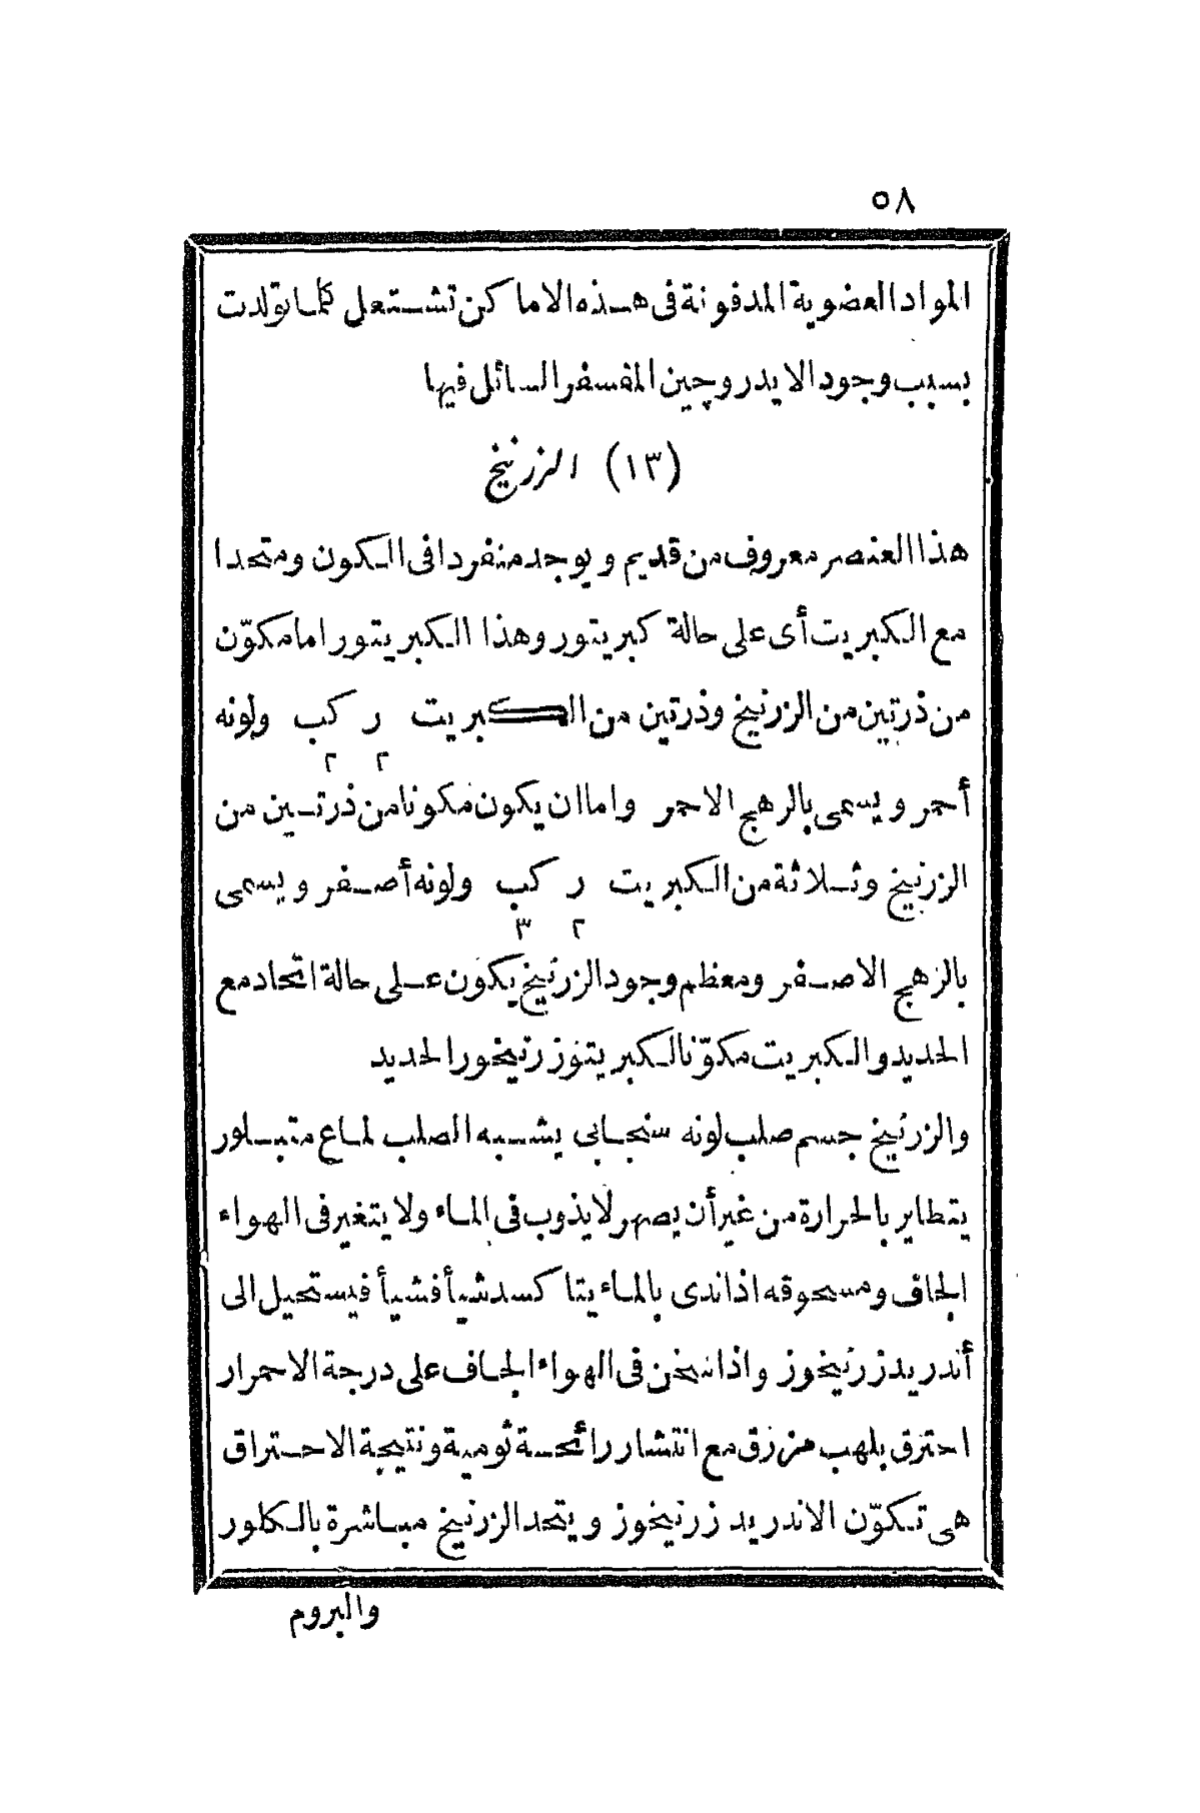 ٥٨
المواد العضوية المدفونة فى هذه الاماكن تشتعل كلما تولدت
بسبب وجود الايدروچين المفسفر السائل فيها
(١٣) الزرنيخ
هذا العنصر معروف من قديم ويوجد منفردا فى الكون ومتحدا
مع الكبريت أى على حالة كبريتور وهذا الكبريتور اما مكوّن
من ذرتين من الزرنيخ وذرتين من الكبريت ر كب ولونه
٢ ٢
أحمر ويسمى بالرهج الاحمر واما ان يكون مكونا من ذرتين من
الزرنيخ وثلاثة من الكبريت ر كب ولونه أصفر ويسمى
٢ ٣
بالزهج الاصفر ومعظم وجود الزرنيخ يكون على حالة اتحاد مع
الحديد والكبريت مكوّنا لكبريتوز رنيخور الحديد
والزرنيخ جسم صلب لونه سنجابى يشبه الصلب لماع متبلور
يتطاير بالحرارة من غير أن يصهر لا يذوب فى الماء ولا يتغير فى الهواء
الجاف ومسحوقه اذا ندى بالماء يتاكسد شيأ فشيأ فيستحيل الى
أندريد زرنيخوز واذا سخن فى الهواء الجاف على درجة الاحمرار
احترق بلهب مزرق مع انتشار رائحة ثومية ونتيجة الاحتراق
هى تكوّن الاندريد زرنيخوز ويتحد الزرنيخ مباشرة بالكلور
والبروم